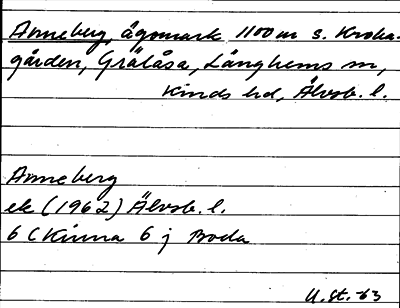 Anneberg, ägomark 1100 m s. Kroka-
gården, Grälåsa, Länghems sn,
Kinds hd, Älvsb. l.
Anneberg
ek (1962) Älvsb. l.
6 C Kinna 6 j Boda
U. St. -63